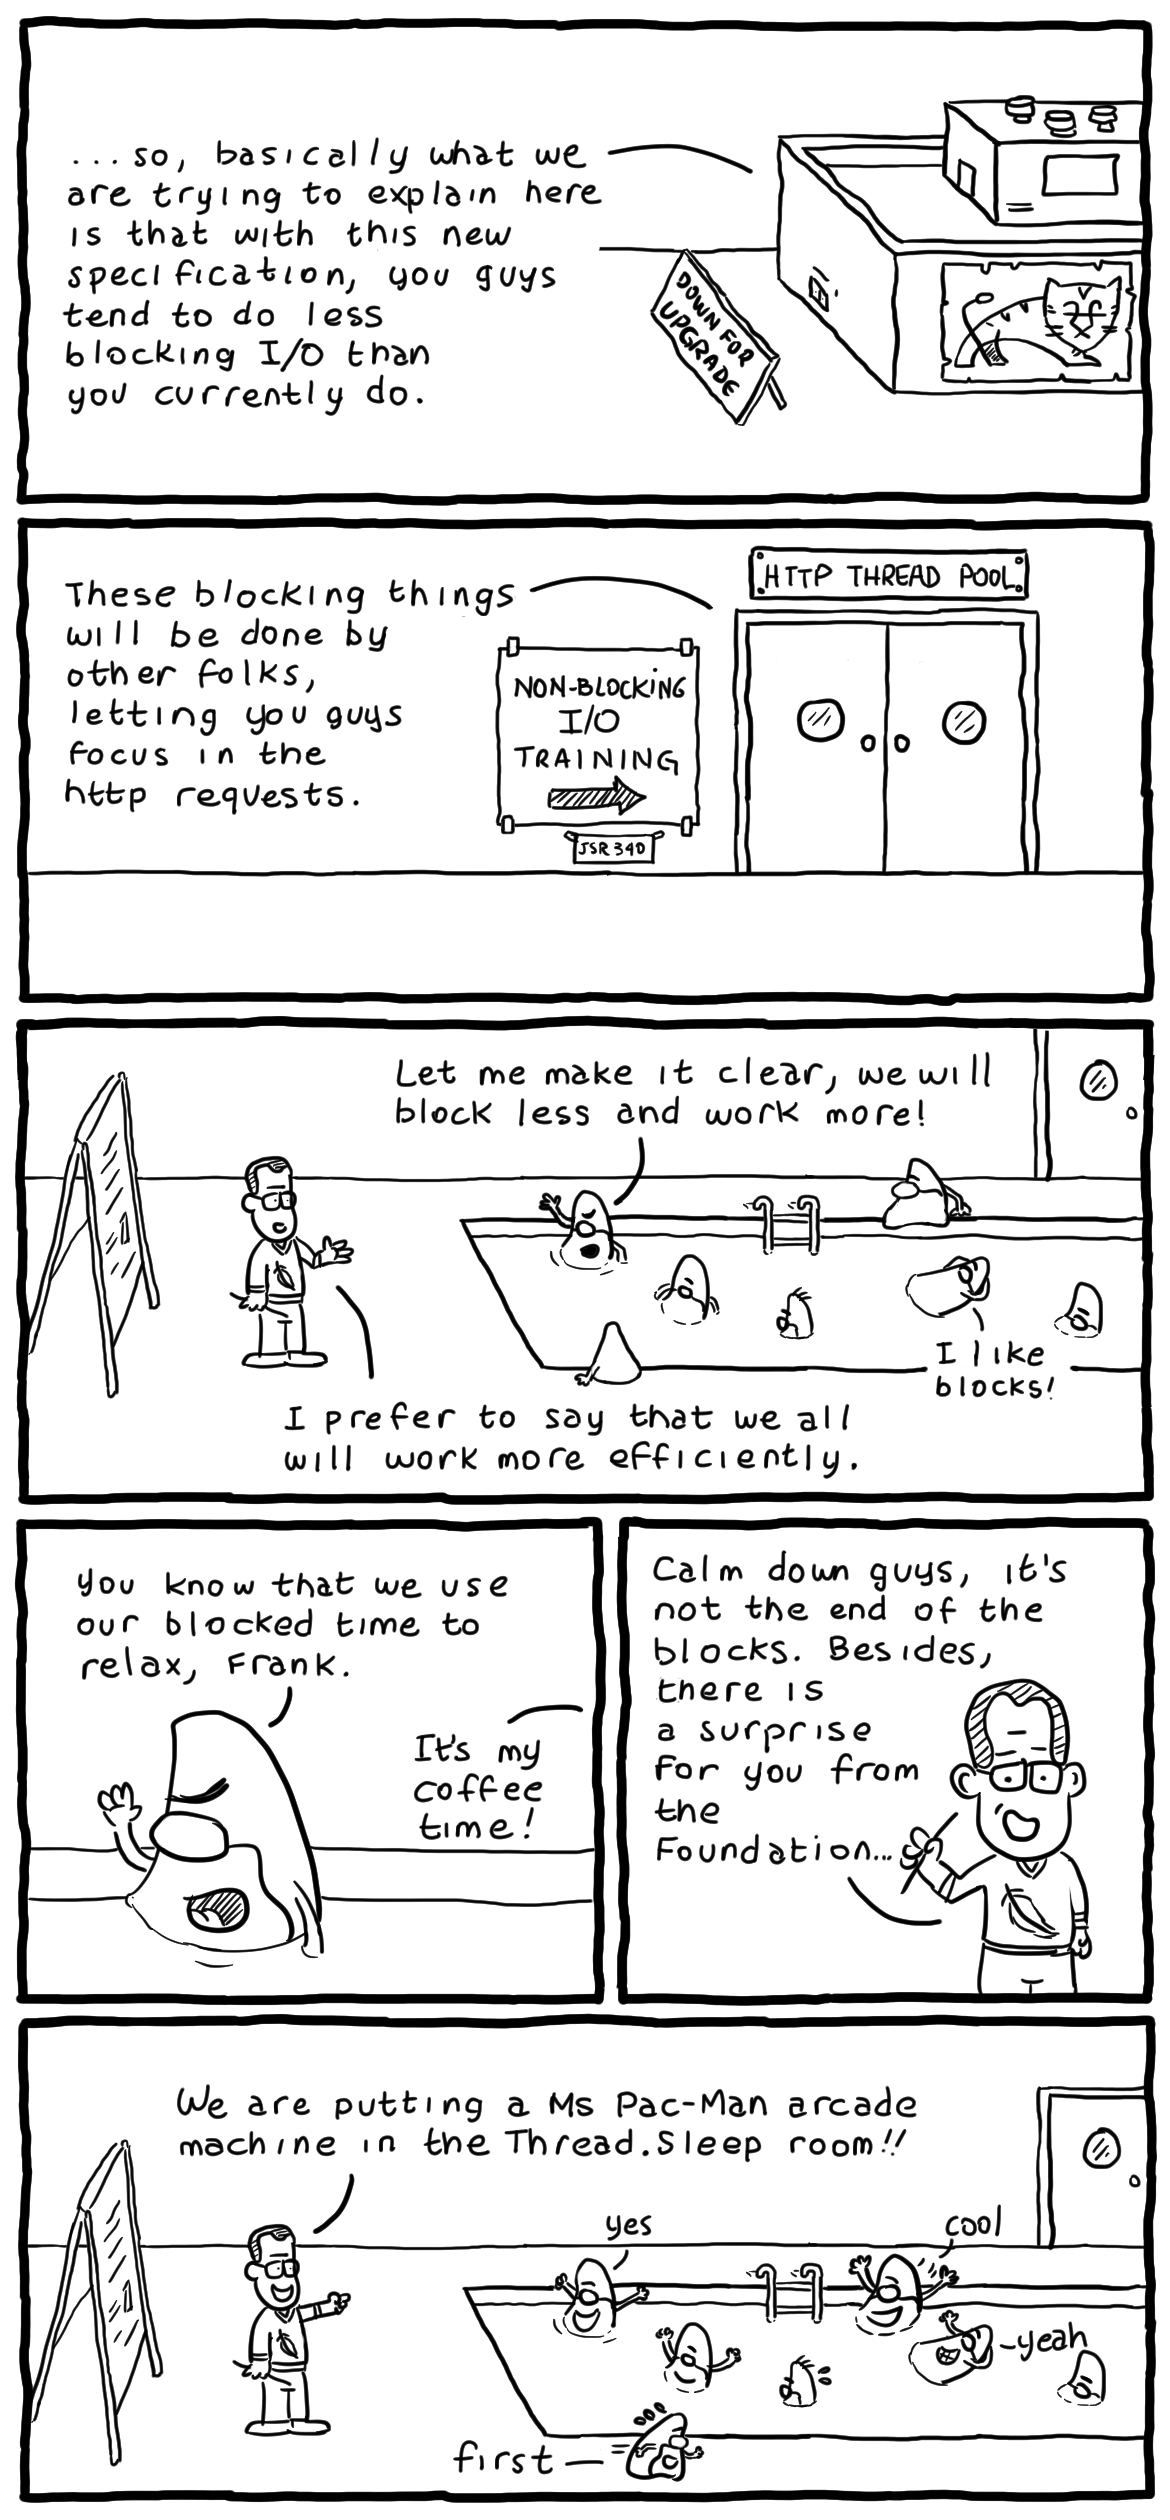 ...so, basically what we
are trying to explain here
is that with this new
specification, you guys
tend to do less
blocking I/O than
you currently do.
DOWN FOR
UPGRADE
These blocking things
will be done by
other folks,
letting you guys
focus in the
http requests.
NON-BLOCKING
I/O
TRAINING
JSR 340
HTTP THREAD POOL
Let me make it clear, we will
block less and work more!
I like
blocks!
I prefer to say that we all
will work more efficiently.
you know that we use
our blocked time to
relax, Frank.
It's my
coffee
time!
Calm down guys, it's
not the end of the
blocks. Besides,
there is
a surprise
for you from
the
Foundation...
We are putting a Ms Pac-Man arcade
machine in the Thread.Sleep room!!
yes
cool
yeah
first